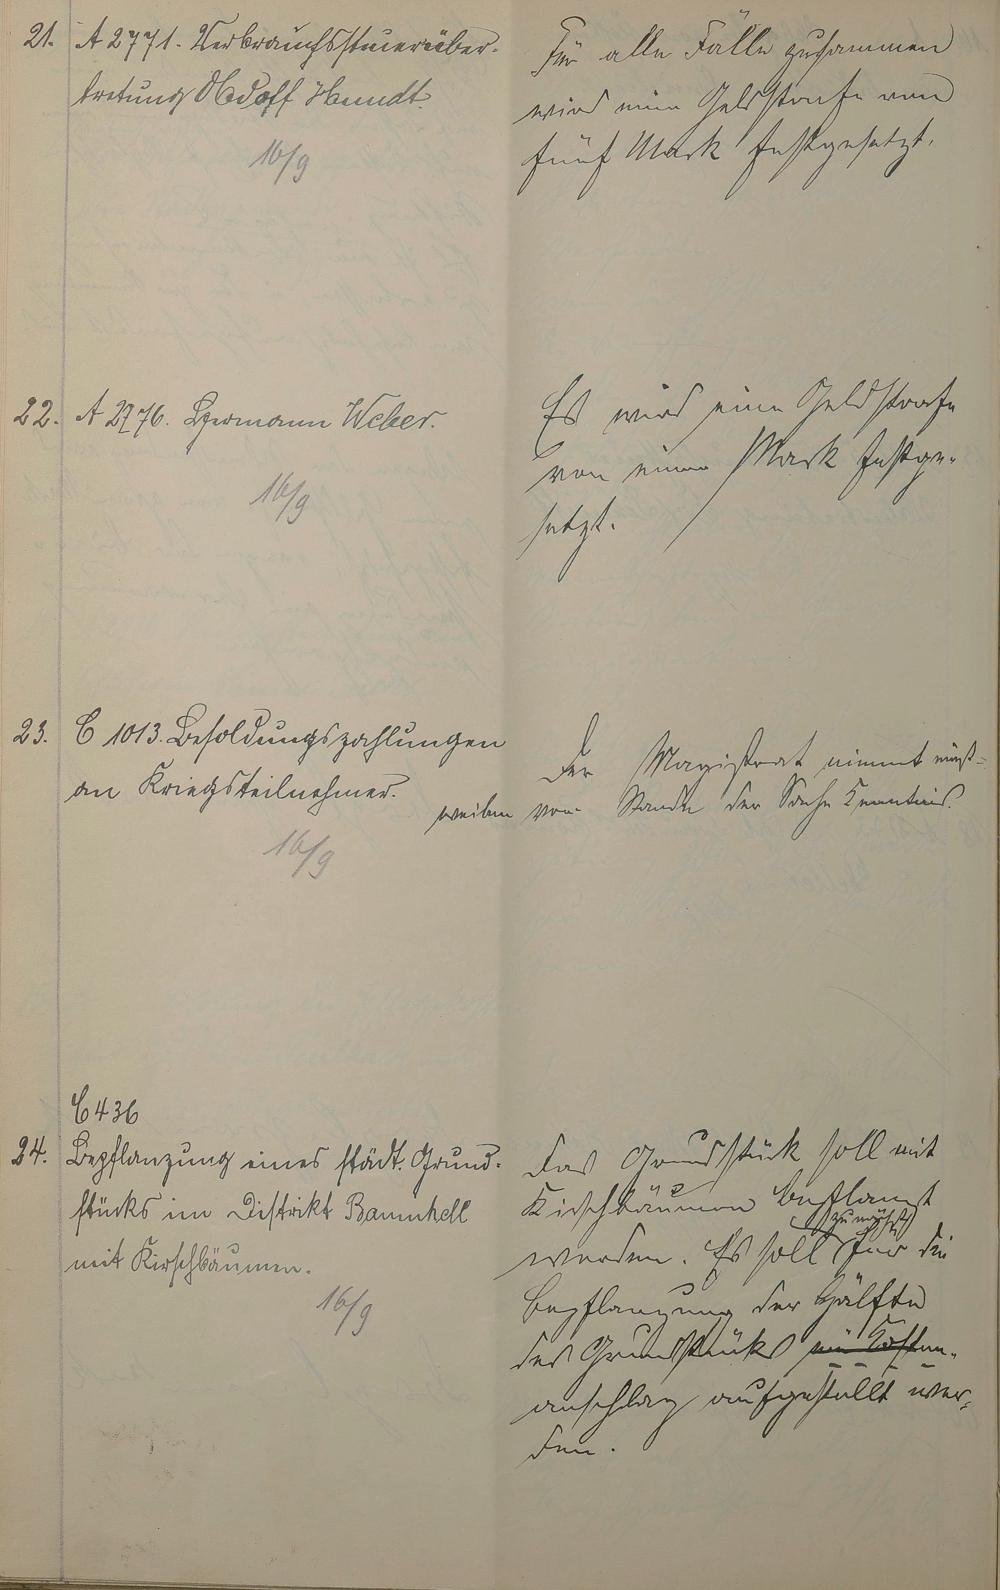 21. A 2771. Verbrauchssteuerüber-
tretung Adolf Hundt.
16/9
Für alle Fälle zusammen
wird eine Geldstrafe von
fünf Mark festgesetzt.
22. A 2776. Hermann Weber.
16/9
Es wird eine Geldstrafe
von einer Mark festge-
setzt.
23. C 1013. Besoldungszahlungen
an Kriegsteilnehmer.
16/9
Der Magistrat nimmt
weilen vom Stande der Sache Kenntnis.
C 436
24. Bepflanzung eines städt. Grund-
stücks im Distrikt Baumhell
mit Kirschbäumen.
16/9
Das Grundstück soll mit
Kirschbäumen bepflanzt
werden. Es soll (zunächst) für die
Bepflanzung der Hälfte
des Grundstücks ein Kosten-
anschlag aufgestellt wer-
den.